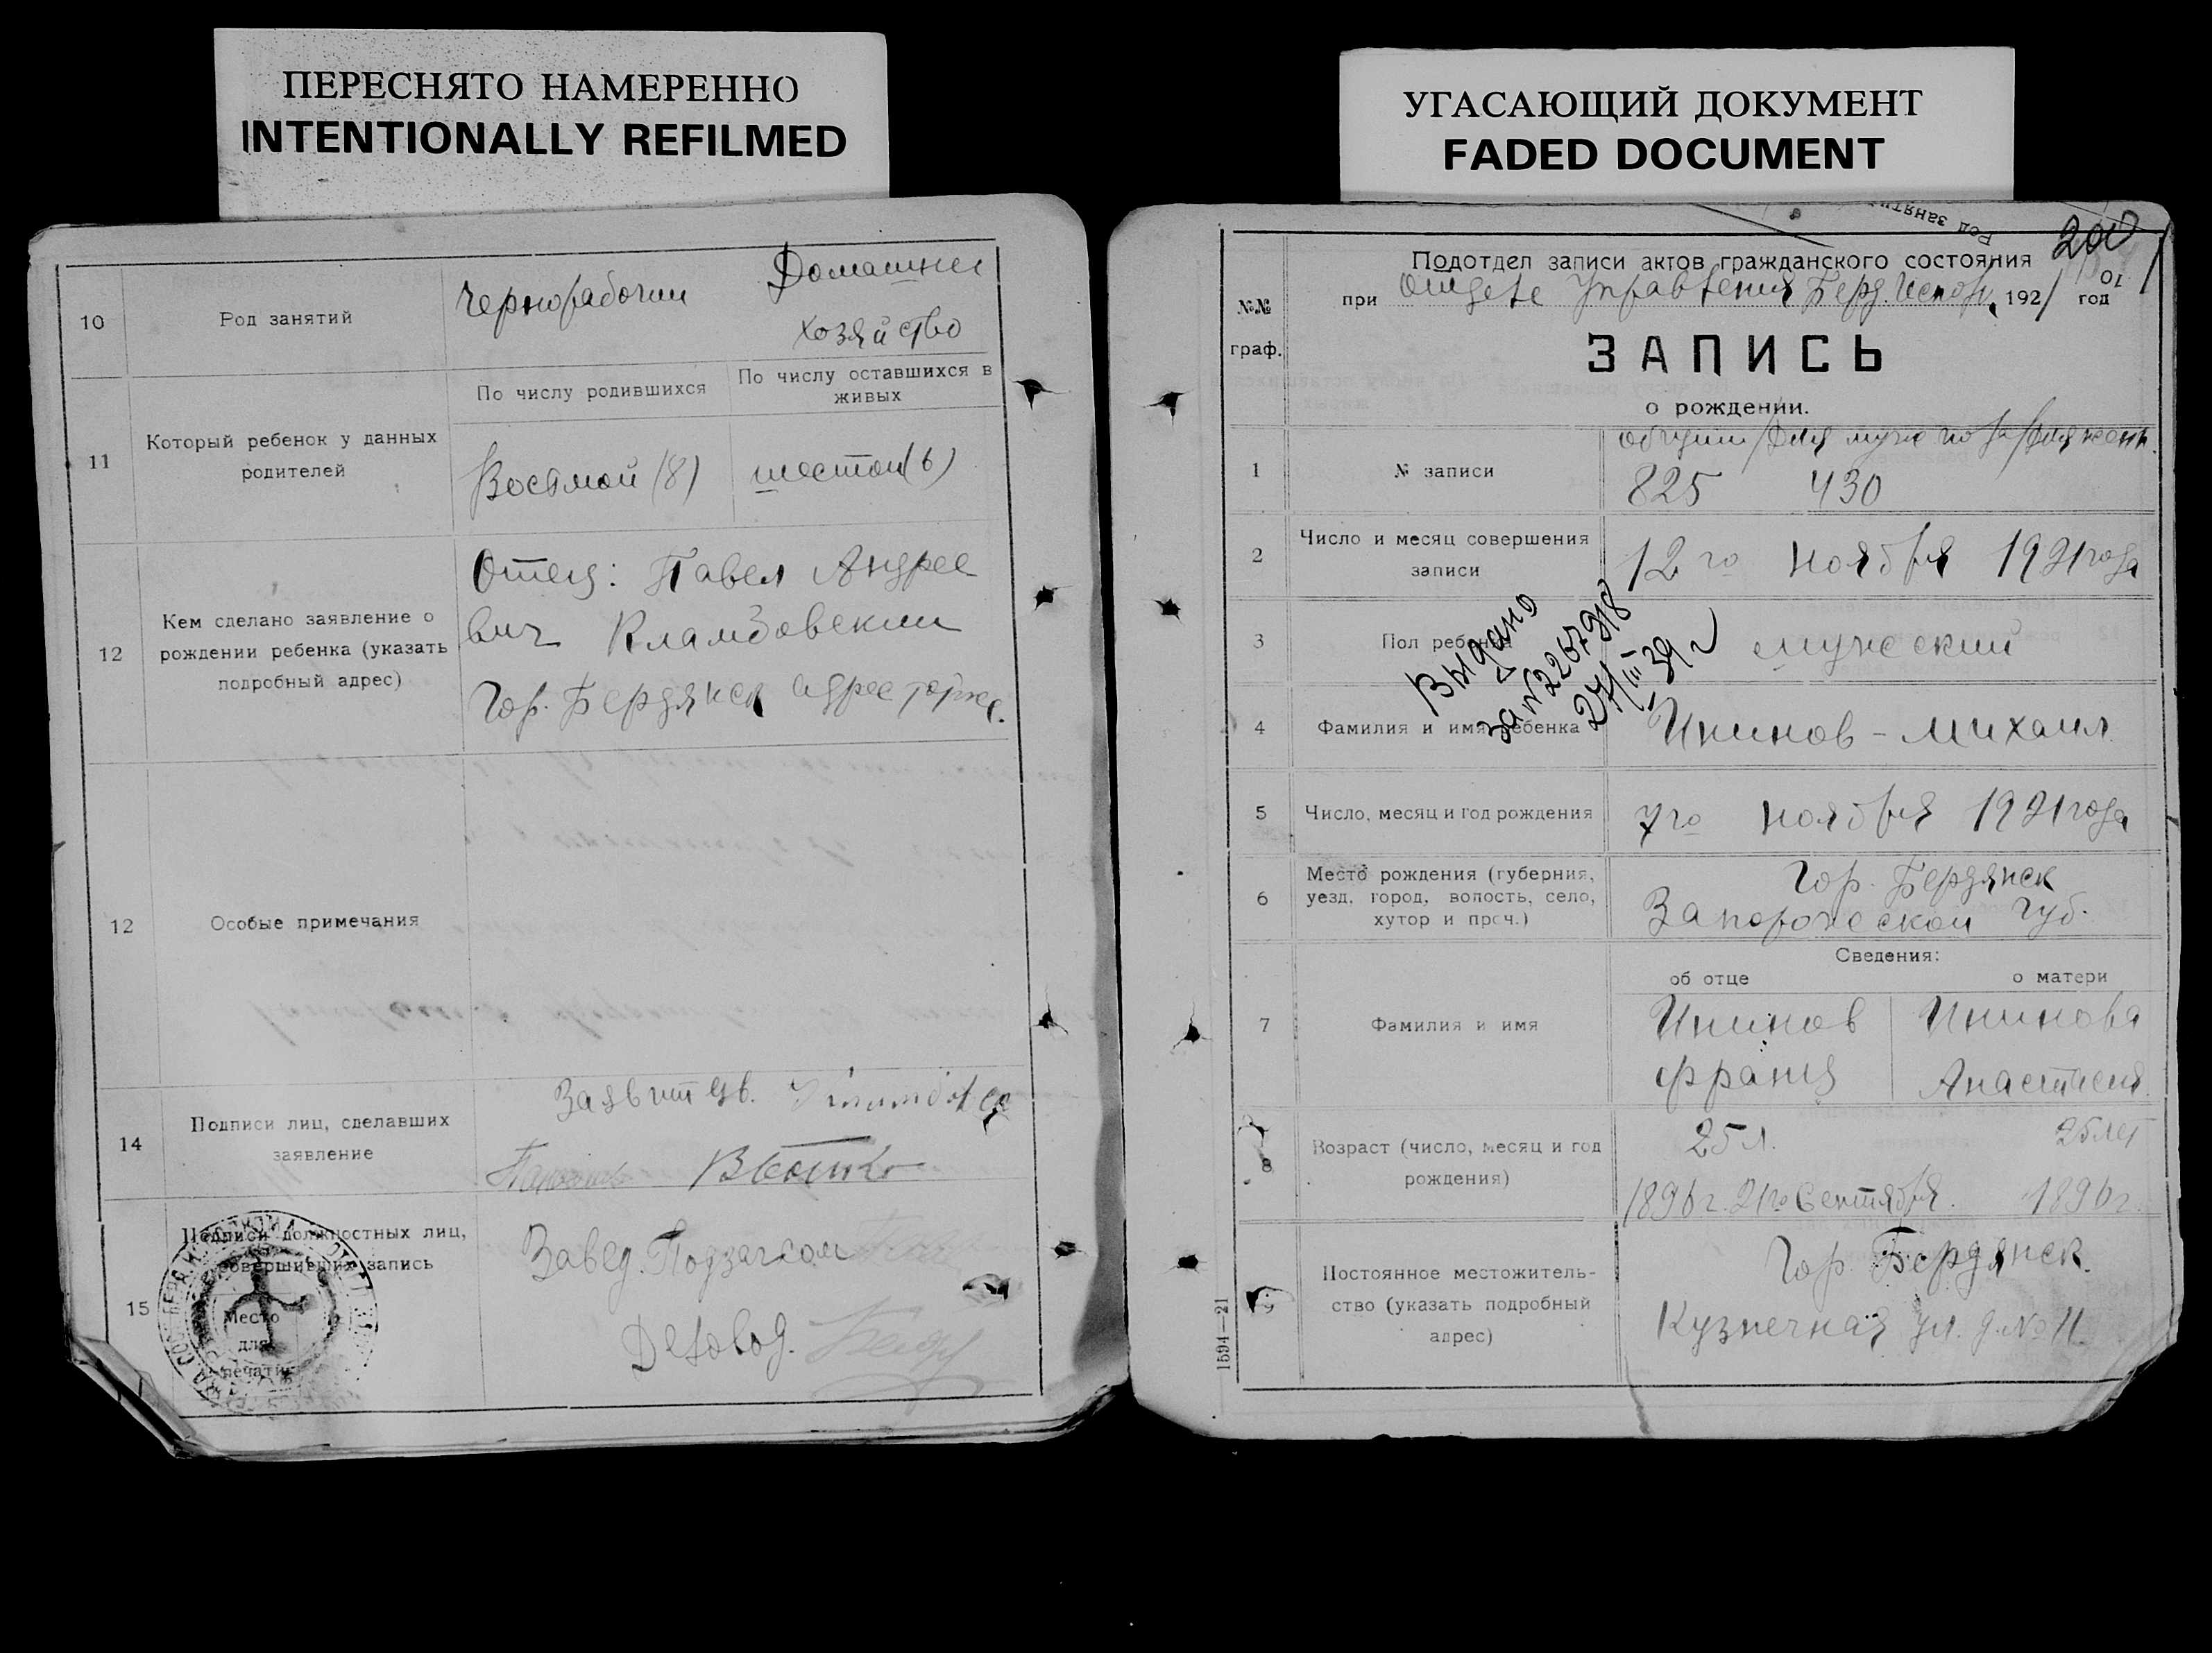 ПЕРЕСНЯТО НАМЕРЕННО
INTENTIONALLY REFILMED
10
Род занятий
Чернорабочий
Домашнее
хозяйство
11
Который ребенок у данных
родителей
По числу родившихся
По числу оставшихся в
живых
Восьмой (8)
шестой (6)
12
Кем сделано заявление о
рождении ребенка (указать
подробный адрес)
Отец: Павел Андрее
вич
Гор. Бердянск адрес тотже.
12
Особые примечания
14
Подписи лиц, сделавших
заявление
15
Подписи должностных лиц,
совершивших запись
Место
для
печати
Завед. Подзагсом
Деловод.
УГАСАЮЩИЙ ДОКУМЕНТ
FADED DOCUMENT
Род занятий
200
№№
граф.
Подотдел записи актов гражданского состояния
при Отделе Управления Берд. Исполк. 1921 год
ЗАПИСЬ
о рождении.
1
№ записи
825 430
2
Число и месяц совершения
записи
12го ноября 1921 года
3
Пол ребенка
мужский
Выдано
за № 2267918
27/III 39 г
4
Фамилия и имя ребенка
Икинов - Михаил
5
Число, месяц и год рождения
7го ноября 1921 года
6
Место рождения (губерния,
уезд, город, волость, село,
хутор и проч.)
Гор. Бердянск
Запорожской губ.
Сведения:
об отце
о матери
7
Фамилия и имя
Икинов
Франц
Икинова
Анастасия
8
Возраст (число, месяц и год
рождения)
25 л.
1896 г. 21го Сентября.
25 лет
1896 г.
9
Постоянное местожитель-
ство (указать подробный
адрес)
Гор. Бердянск.
Кузнечная ул. д. № 11.
1594—21